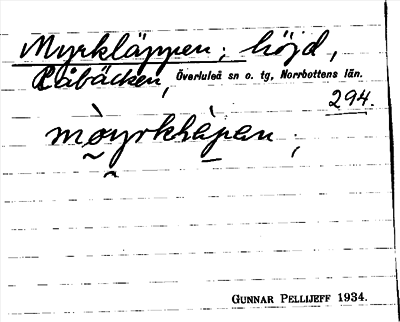 Myrkläppen; höjd,
Råbäcken, Överluleå sn o. tg, Norrbottens län.
294.
mòyrkläpan;
GUNNAR PELLIJEFF 1934.